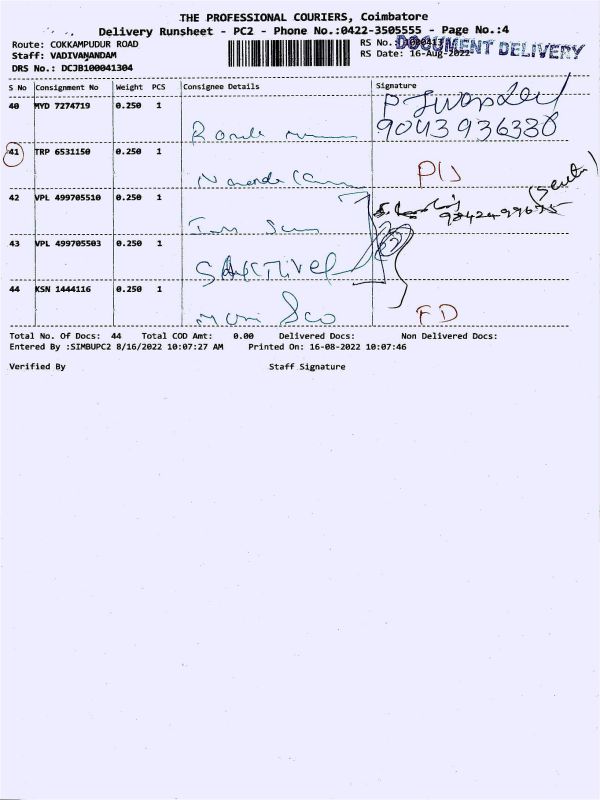 THE PROFESSIONAL COURIERS, Coimbatore
Delivery Runsheet - PC2 - Phone No.:0422-3505555 - Page No.:4
Route: COKKAMPUDUR ROAD
RS No.:
DOCUMENT DELIVERY
Staff: VADIVANANDAM
RS Date: 16-Aug-2022
DRS No.: DCJB100041304
S No Consignment No Weight PCS Consignee Details Signature
40 MYD 7274719 0.250 1
9043936380
41 TRP 6531150 0.250 1
42 VPL 499705510 0.250 1
43 VPL 499705503 0.250 1
SAKTHIVEL
44 KSN 1444116 0.250 1
FD
Total No. Of Docs: 44 Total COD Amt: 0.00 Delivered Docs: Non Delivered Docs:
Entered By :SIMBUPC2 8/16/2022 10:07:27 AM Printed On: 16-08-2022 10:07:46
Verified By Staff Signature